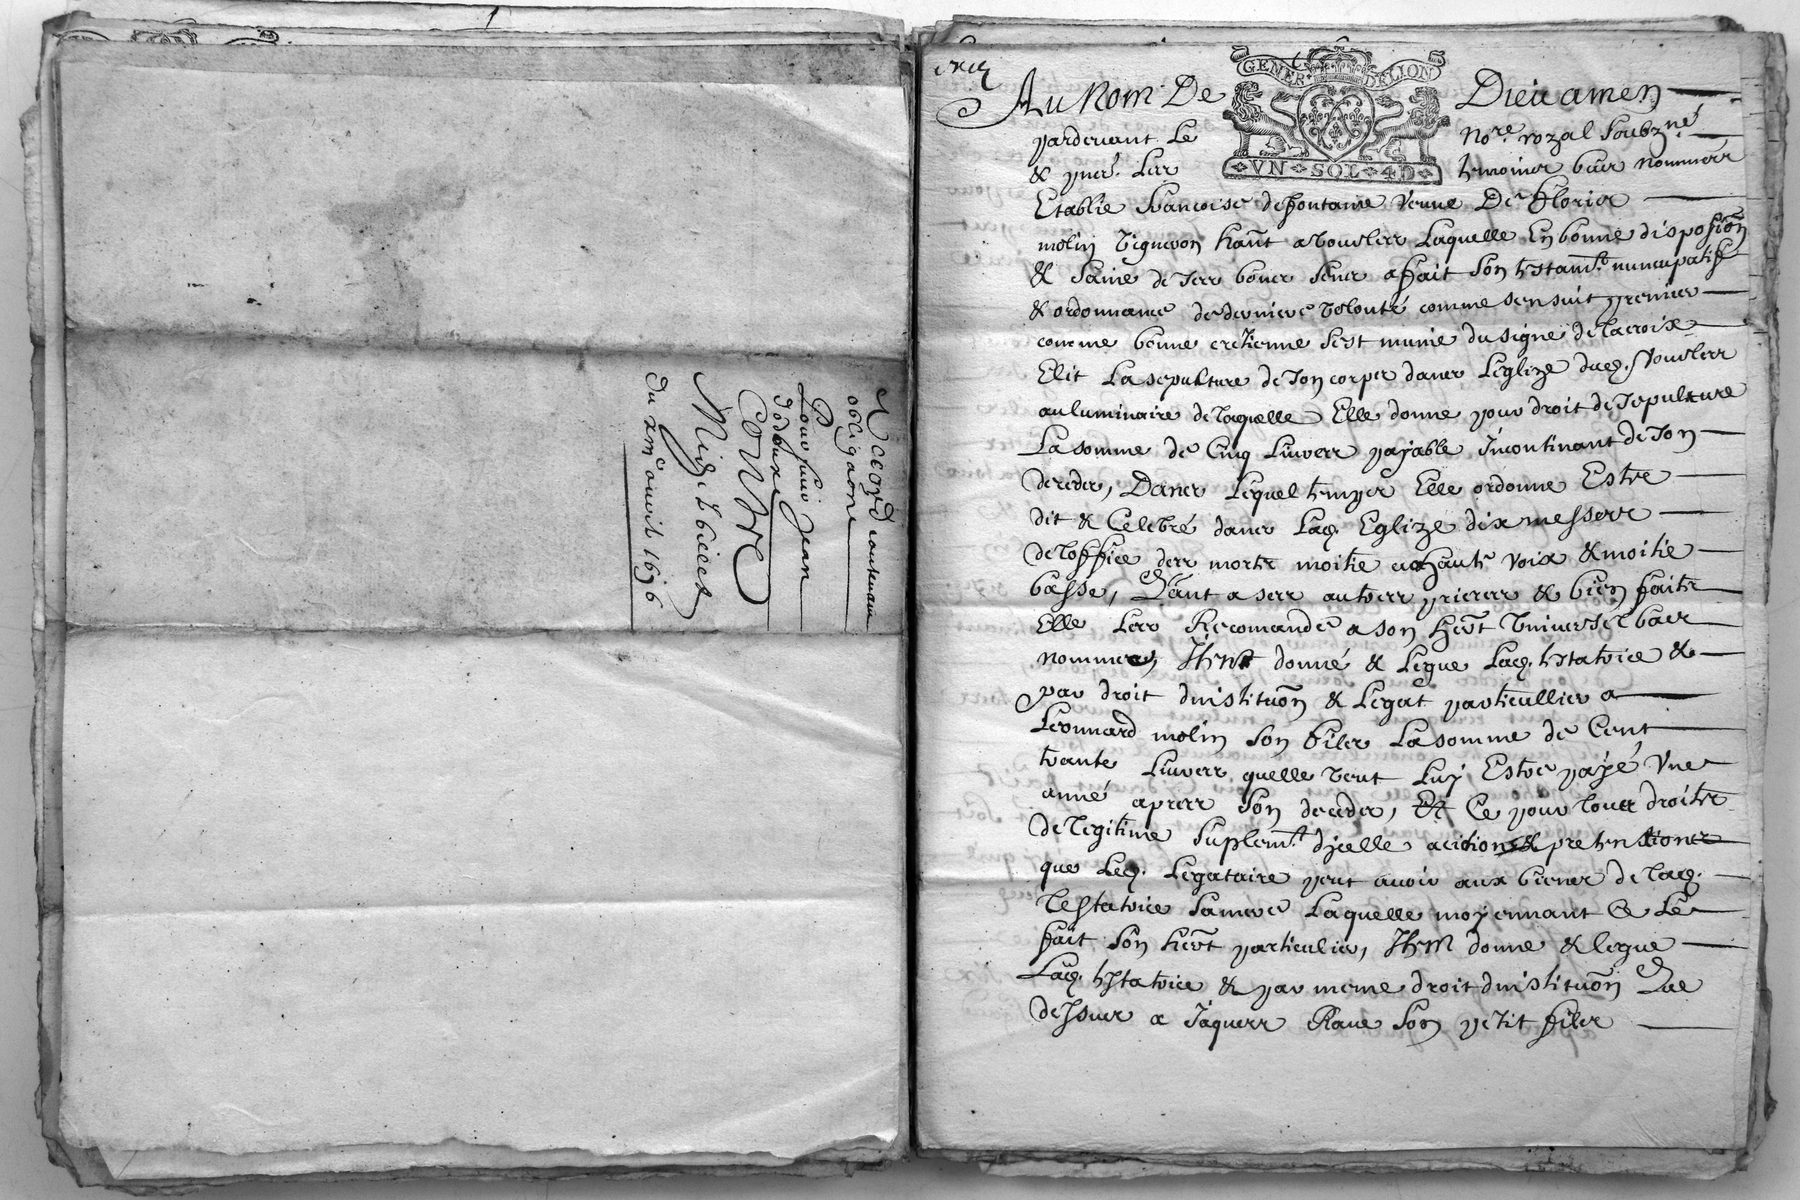 Accord contenant
obligaōne
Pour sieur Jean
Jodoux
Contre
du xme avril 1696
GENER. DELION
VN SOL 4D
Au Nom De Dieu amen
pardevant Le Nore. royal soubzné
& pnts. Les temoins bas nommes
Establie Francoise defontaine veuve De Floris
molin vigneron hānt a vourles Laquelle En bonne disposiōn
& saine de ses bons sens a fait son testamt. nuncupatif
& ordonnance de derniere volonté comme sensuit premier
comme bonne cretienne sest munie du signe de lacroix
Elit La sepulture de son corps dans Leglize dud. vourles
au luminaire de laquelle Elle donne pour droit de sepulture
La somme de Cinq Livres payable Incontinant de son
deceder, Dans Lequel temps Elle ordonne Estre
dit & Celebré dans Lad. Eglize dix messes
de loffice des morts moitie a haute voix & moitie
basse, Quant a ses autres prieres & bien faits
Elle Les Recomande a son hert Universel bas
nommer, Item donne & Legue Lad. testatrice &
par droit dinstituōn & Legat particullier a
Leonnard molin son fils La somme de Cent
trante Livres quelle veut Luy Estre payé Vne
anné apres son deceder, Et Ce pour tous droits
de legitime suplemt. dicelle action & pretenstions
que Led. Legataire peut avoir aux biens de lad.
testatrice samere Laquelle moyennant Ce Le
fait son hert particulier, Item donne & legue
Lad. testatrice & par meme droit dinstituōn Que
dessus a Jaques Rave son petit fils